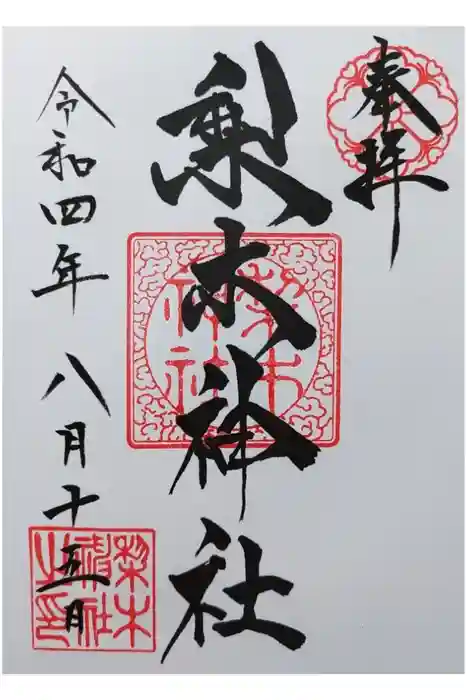 奉拝
梨木神社
梨木
神社
令和四年八月十五日
梨木
神社
之印